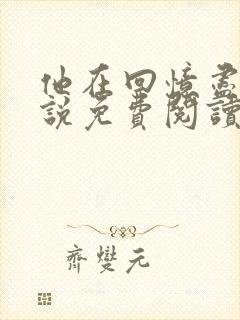 他在回憶盡
說免費閱讀
齊變元